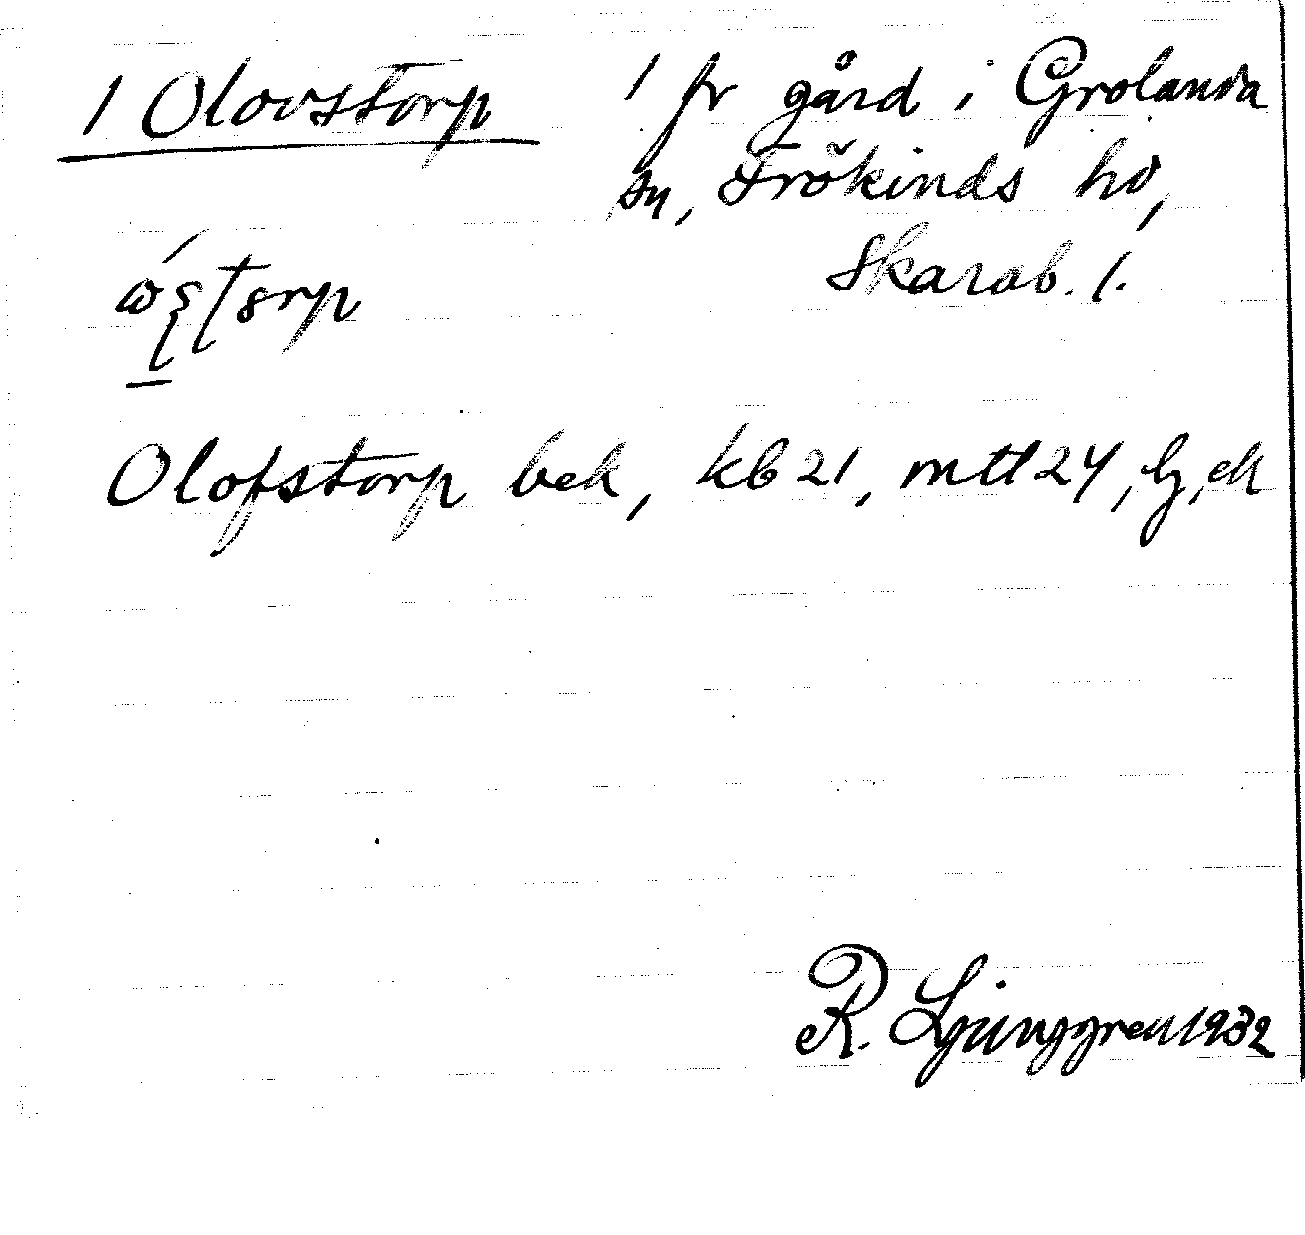 1 Olovstorp
1 fr gård i Grolanda
sn, Frökinds hd,
Skarab. l.
Olofstorp bek, kb 21, mtl 24, lj, ek
R. Ljunggren 1932